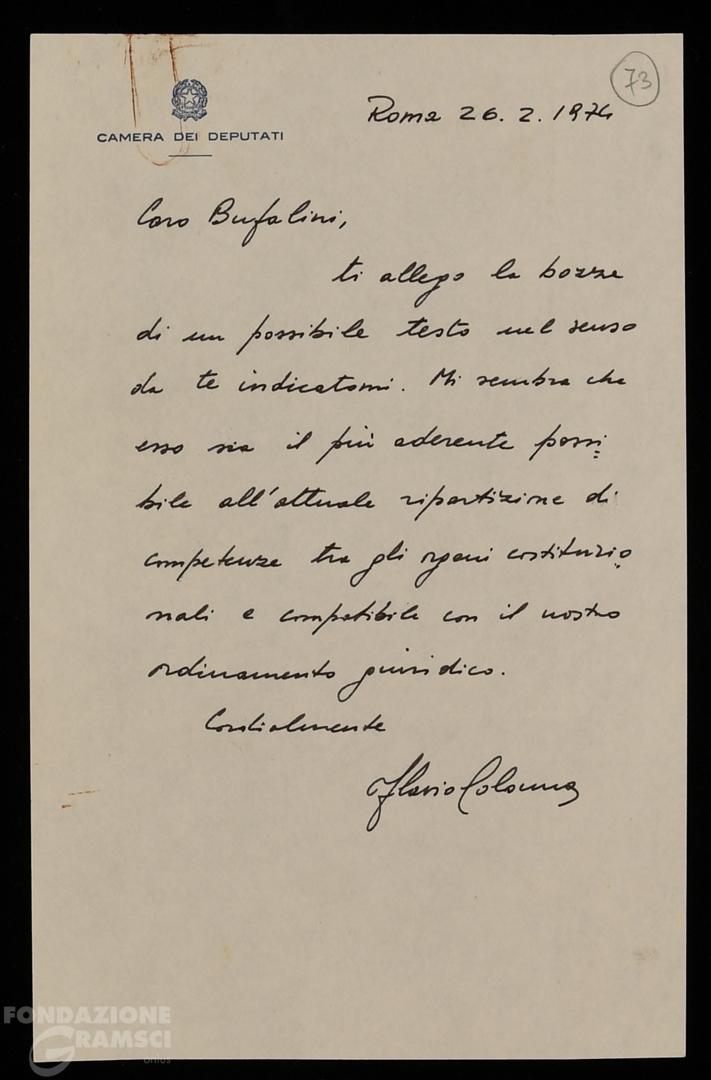 73
CAMERA DEI DEPUTATI
Roma 26.2.1974
Caro Bufalini,
ti allego la bozza
di un possibile testo nel senso
da te indicatomi. Mi sembra che
esso sia il più aderente possi=
bile all'attuale ripartizione di
competenze tra gli organi costituzio=
nali e compatibile con il nostro
ordinamento giuridico.
Cordialmente
Flavio Colonna
FONDAZIONE
GRAMSCI
onlus